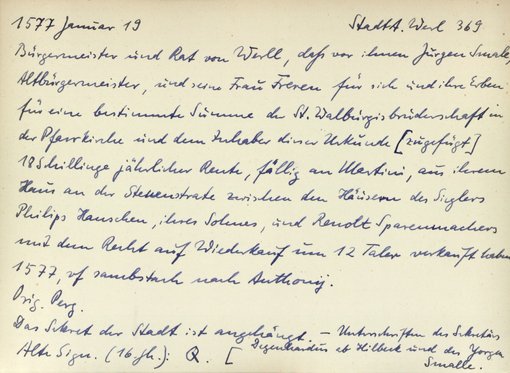 1577 Januar 19 StadtA. Werl 369
Bürgermeister und Rat von Werll, daß vor ihnen Jürgen Smale,
Altbürgermeister, und seine Frau Freren für sich und ihre Erben
für eine bestimmte Summe der St. Walburgisbruderschaft in
der Pfarrkirche und dem Inhaber dieser Urkunde [zugefügt]
18 Schillinge jährlicher Rente, fällig an Martini, aus ihrem
Haus an der Steinenstrate zwischen den Häusern des Siglers
Philips Hanschen, ihres Sohnes, und Renolt Sparenmachers
mit dem Recht auf Wiederkauf um 12 Taler verkauft haben
1577, vf sambstach nach Anthonij.
Orig. Perg.
Das Sekret der Stadt ist angehängt. – Unterschriften des Sekretärs
Degenhardus ab Hilbeck und des Jorgen
Alte Sign. (16. Jh.): Q. [ Smalle.